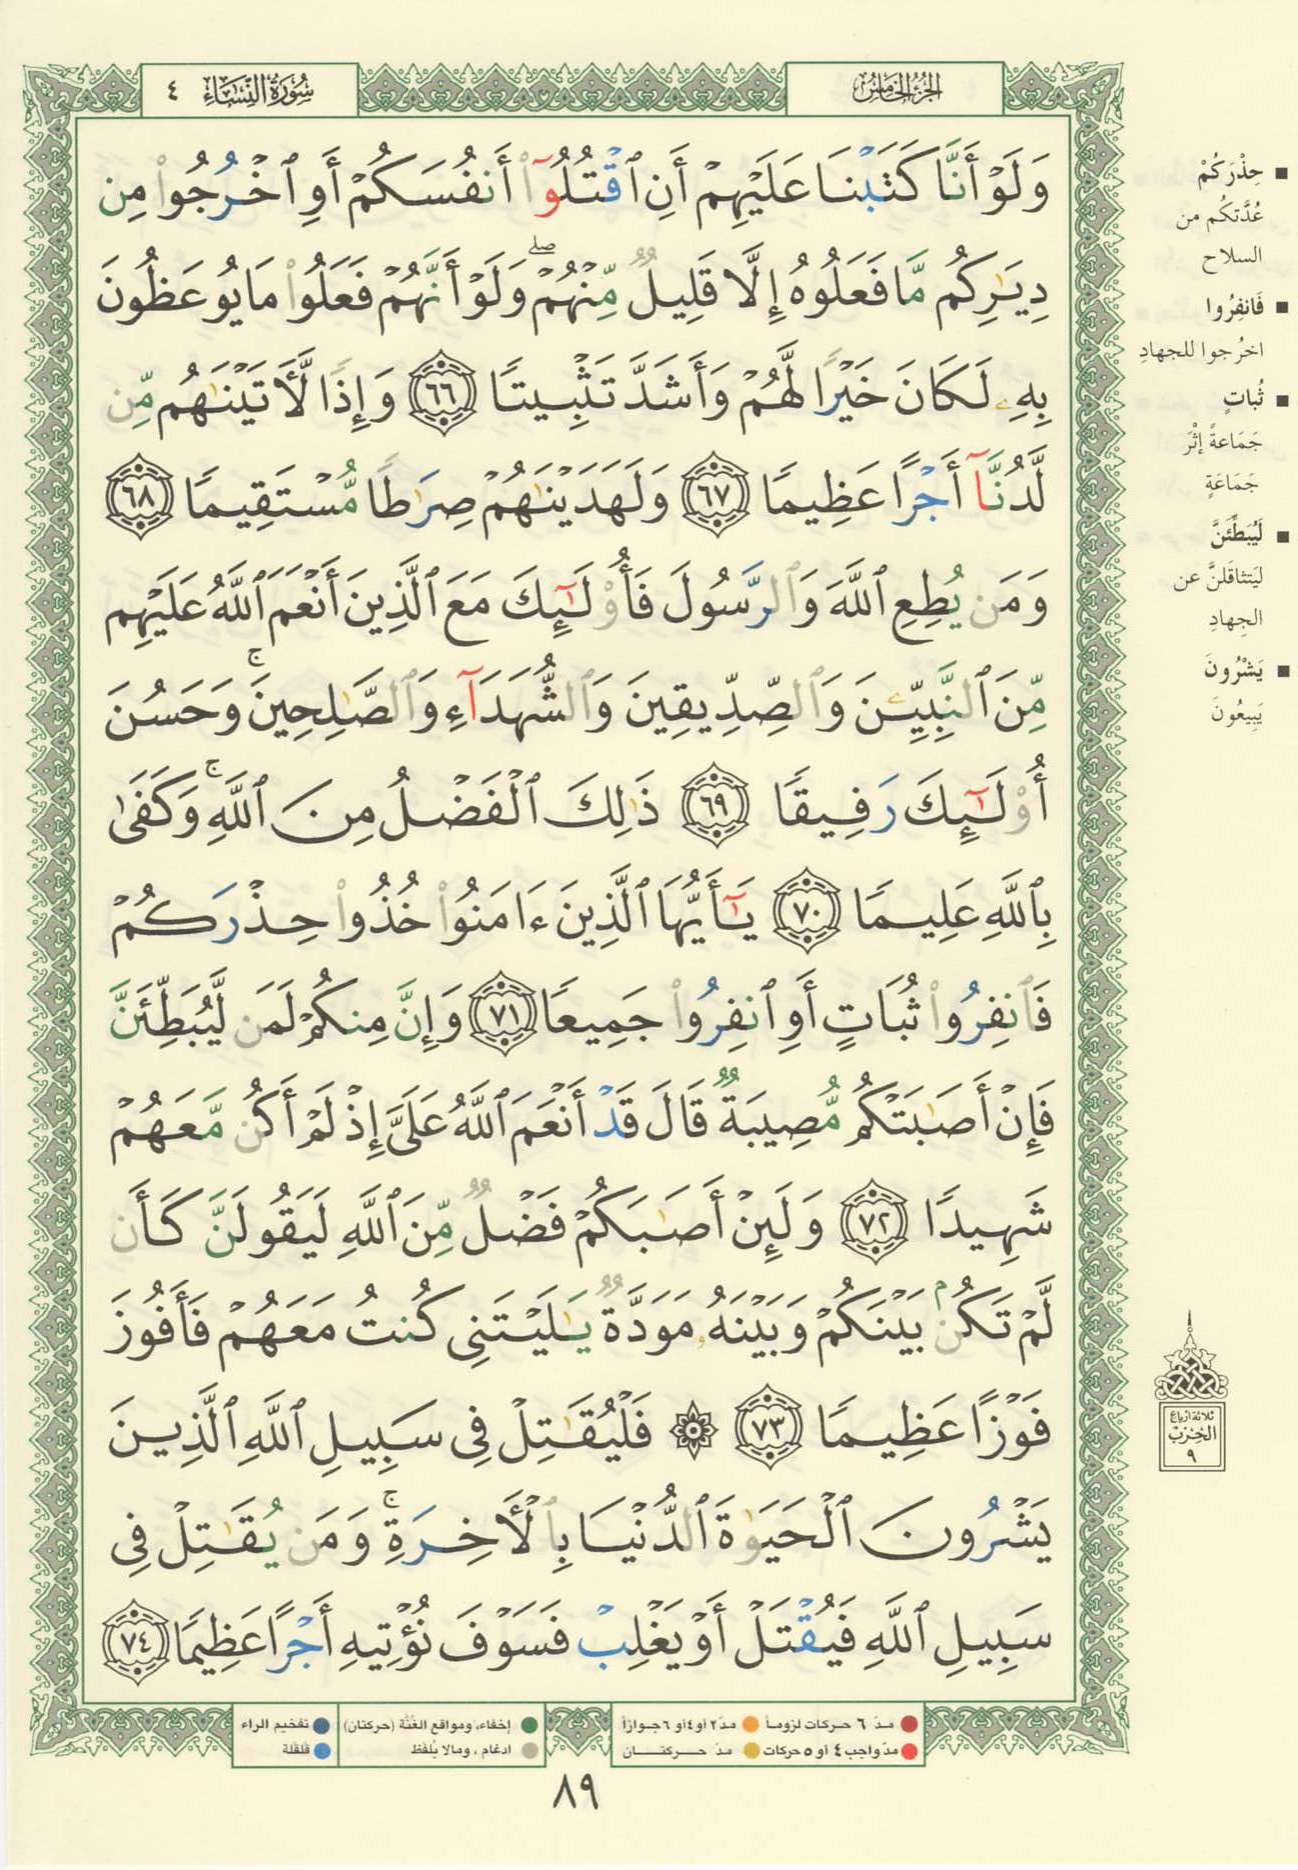 سُورَةُ النِّسَاءِ ٤
الجُزْءُ الخَامِسُ
وَلَوْ أَنَّا كَتَبْنَا عَلَيْهِمْ أَنِ ٱقْتُلُوٓا۟ أَنفُسَكُمْ أَوِ ٱخْرُجُوا۟ مِن
دِيَٰرِكُم مَّا فَعَلُوهُ إِلَّا قَلِيلٌ مِّنْهُمْ ۖ وَلَوْ أَنَّهُمْ فَعَلُوا۟ مَا يُوعَظُونَ
بِهِۦ لَكَانَ خَيْرًا لَّهُمْ وَأَشَدَّ تَثْبِيتًا ٦٦ وَإِذًا لَّأٓتَيْنَٰهُم مِّن
لَّدُنَّآ أَجْرًا عَظِيمًا ٦٧ وَلَهَدَيْنَٰهُمْ صِرَٰطًا مُّسْتَقِيمًا ٦٨
وَمَن يُطِعِ ٱللَّهَ وَٱلرَّسُولَ فَأُو۟لَٰٓئِكَ مَعَ ٱلَّذِينَ أَنْعَمَ ٱللَّهُ عَلَيْهِم
مِّنَ ٱلنَّبِيِّۦنَ وَٱلصِّدِّيقِينَ وَٱلشُّهَدَآءِ وَٱلصَّٰلِحِينَ ۚ وَحَسُنَ
أُو۟لَٰٓئِكَ رَفِيقًا ٦٩ ذَٰلِكَ ٱلْفَضْلُ مِنَ ٱللَّهِ ۚ وَكَفَىٰ
بِٱللَّهِ عَلِيمًا ٧٠ يَٰٓأَيُّهَا ٱلَّذِينَ ءَامَنُوا۟ خُذُوا۟ حِذْرَكُمْ
فَٱنفِرُوا۟ ثُبَاتٍ أَوِ ٱنفِرُوا۟ جَمِيعًا ٧١ وَإِنَّ مِنكُمْ لَمَن لَّيُبَطِّئَنَّ
فَإِنْ أَصَٰبَتْكُم مُّصِيبَةٌ قَالَ قَدْ أَنْعَمَ ٱللَّهُ عَلَىَّ إِذْ لَمْ أَكُن مَّعَهُمْ
شَهِيدًا ٧٢ وَلَئِنْ أَصَٰبَكُمْ فَضْلٌ مِّنَ ٱللَّهِ لَيَقُولَنَّ كَأَن
لَّمْ تَكُنۢ بَيْنَكُمْ وَبَيْنَهُۥ مَوَدَّةٌ يَٰلَيْتَنِى كُنتُ مَعَهُمْ فَأَفُوزَ
فَوْزًا عَظِيمًا ٧٣ ۞ فَلْيُقَٰتِلْ فِى سَبِيلِ ٱللَّهِ ٱلَّذِينَ
يَشْرُونَ ٱلْحَيَوٰةَ ٱلدُّنْيَا بِٱلْأَخِرَةِ ۚ وَمَن يُقَٰتِلْ فِى
سَبِيلِ ٱللَّهِ فَيُقْتَلْ أَوْ يَغْلِبْ فَسَوْفَ نُؤْتِيهِ أَجْرًا عَظِيمًا ٧٤
حِذْرَكُمْ
عُدَّتكُم من
السلاح
فَانفِرُوا
اخرُجوا للجهادِ
ثُباتٍ
جَمَاعةً إثْرَ
جَمَاعَةٍ
لَيُبَطِّئَنَّ
ليَتثاقَلنَّ عن
الجِهادِ
يَشْرُونَ
يَبِيعُونَ
ثلاثة أرباع
الحِزبْ
٩
مدّ ٦ حركات لزوماً
مدّ ٢ أو ٤ أو ٦ جوازاً
إخفاء، ومواقع الغُنَّة (حركتان)
تفخيم الراء
مدّ واجب ٤ أو ٥ حركات
مدّ حركتان
ادغام ، ومالا يُلفَظ
قلقلة
٨٩